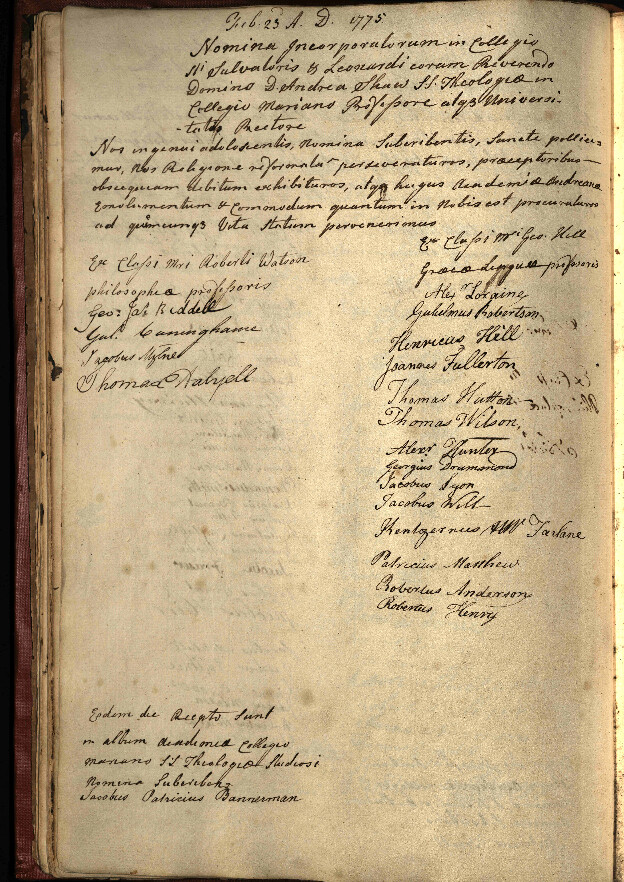 Feb. 23 A. D. 1775
Nomina Incorporatorum in Collegio
Sti Salvatoris & Leonardi coram Reverendo
Domino D. Andrea Shaw SS. Theologiæ in
Collegio Mariano Professore atqz Universi-
-tatis Rectore
Nos ingenui adolescentis, nomina Subscribentis, Sancte pollice-
mur, nos Religione reformata perseveraturos, præceptoribus
obsequium debitum exhibituros, atqz hujus Academiæ Andreanæ
Emolumentum & Commodum quantum in Nobis est procuraturos
ad quemcunqz Vitæ Statum pervenerimus
Ex Classi Mri Roberti Watson
philosophiæ professoris
Geo: Jas Riddell
Gul. Cuninghame
Jacobus Mylne
Thomas Dalyell
Ex Classi Mri Geo. Hill
Græcæ Linguæ professoris
Alexr Loraine
Gulielmus Robertson
Henricus Hill
Joannes Fullerton
Thomas Hutton
Thomas Wilson
Alexr Hunter
Georgius Drummond
Jacobus Lyon
Jacobus Will
Kentigernus McFarlane
Patricius Matthew
Robertus Anderson
Robertus Henry
Eodem die Recepti Sunt
in album Academiæ Collegio
Mariano SS Theologiæ Studiosi
Nomina Subscriben
Jacobus Patricius Bannerman